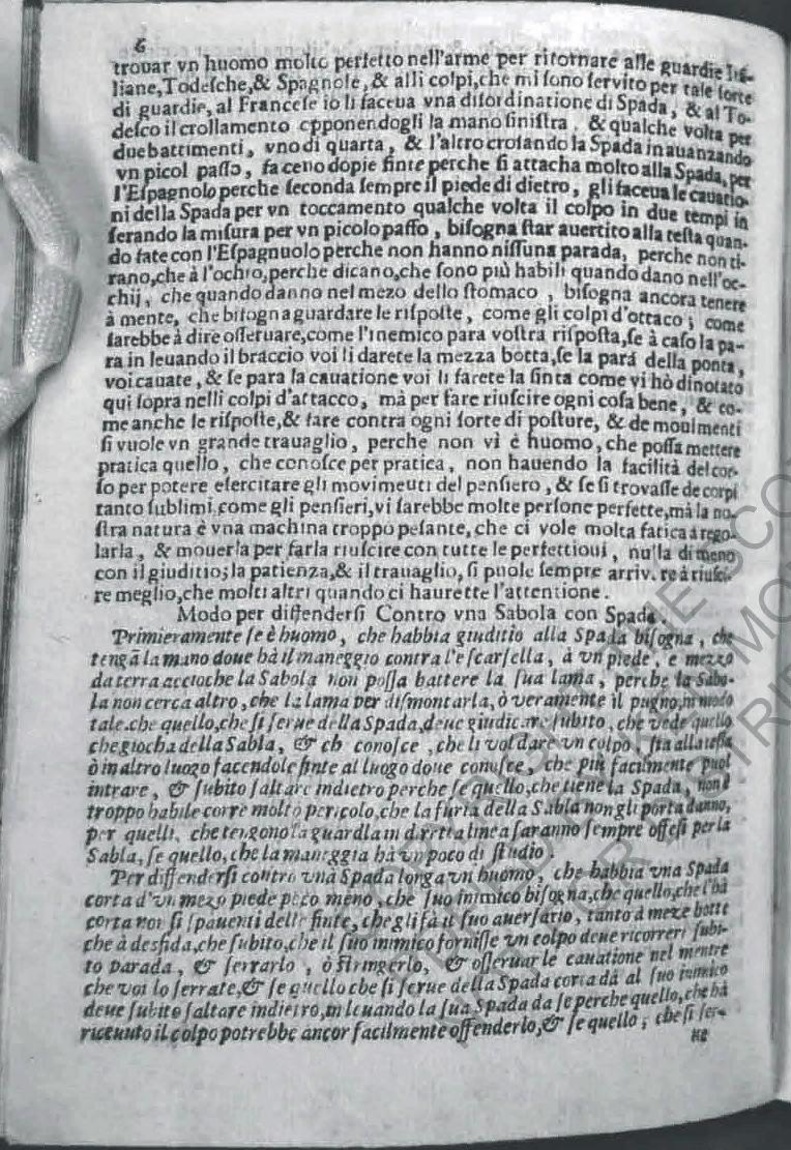 6
trovar vn huomo molto perfetto nell'arme per ritornare alle guardie Ita-
liane, Todesche, & Spagnole, & alli colpi, che mi sono servito per tale sorte
di guardie, al Francese io li faceua vna disordinatione di Spada, & al To-
desco il crollamento opponendogli la mano sinistra, & qualche volta per
due battimenti, vno di quarta, & l'altro crosando la Spada in auanzando
vn picol passo, faceuo dopie finte perche si attacha molto alla Spada, per
l'Espagnolo perche seconda sempre il piede di dietro, gli faceua le cauatio-
ni della Spada per vn toccamento qualche volta il colpo in due tempi in
serando la misura per vn picolo passo, bisogna star auertito alla testa quan-
do fate con l'Espagnuolo perche non hanno nissuna parada, perche non ti-
rano, che à l'ochio, perche dicano, che sono più habili quando dano nell'oc-
chij, che quando danno nel mezo dello stomaco, bisogna ancora tenere
à mente, che bisogna guardare le risposte, come gli colpi d'ottaco; come
sarebbe à dire osseruare, come l'inemico para vostra risposta, se à caso la pa-
ra in leuando il braccio voi li darete la mezza botta, se la pará della ponta,
voi cauate, & se para la cauatione voi li farete la finta come vi hò dinotato
qui sopra nelli colpi d'attacco, mà per fare riuscire ogni cosa bene, & co-
me anche le risposte, & fare contra ogni sorte di posture, & de mouimenti
si vuole vn grande trauaglio, perche non vì è huomo, che possa mettere
pratica quello, che conosce per pratica, non hauendo la facilità del cor-
so per potere esercitare gli movimeuti del pensiero, & se si trovasse de corpi
tanto sublimi come gli pensieri, vi sarebbe molte persone perfette, mà la no-
stra natura è vna machina troppo pesante, che ci vole molta fatica à rego-
larla, & mouerla per farla riuscire con tutte le perfettioui, nulla di meno
con il giuditio; la patienza, & il trauaglio, si puole sempre arriv.re à riusci-
re meglio, che molti altri quando ci haurette l'attentione.
Modo per diffendersi Contro vna Sabola con Spada.
Primieramente se è huomo, che habbia giuditio alla Spada bisogna, che
tengā la mano doue hà il maneggio contra l'escarsella, à vn piede, e mezzo
da terra accioche la Sabola non possa battere la sua lama, perche la Sabo-
la non cerca altro, che la lama per dismontarla, ò veramente il pugno, in modo
tale. che quello, che si serue della Spada, deue giudicare subito, che vede quello
che giocha della Sabla, & ch conosce, che li vol dare vn colpo, sia alla testa
ò in altro luogo facendole finte al luogo doue conosce, che più facilmente puol
intrare, & subito saltare indietro perche se quello, che tiene la Spada, non è
troppo habile corre molto pericolo, che la furia della Sabla non gli porta danno,
per quelli, che tengono la guardla in diretta linea saranno sempre offesi per la
Sabla, se quello, che la maneggia hà vn poco di studio.
Per diffendersi contro vna Spada longa vn huomo, che habbia vna Spada
corta d'vn mezo piede pòco meno, che suo inimico bisogna, che quello, che l'hà
corta non si spauenti delle finte, che gli fà il suo auersario, tanto à meze botte
che à desfida, che subito, che il suo inimico fornisse vn colpo deue ricorrere subi-
to parada, & serrarlo, ò stringerlo, & osseruar le cauatione nel mentre
che voi lo serrate, & se quello che si serue della Spada corta dà al suo inimico
deue subito saltare indietro, in leuando la sua Spada da se perche quello, che hà
riceuuto il colpo potrebbe ancor facilmente offenderlo, & se quello, che si ser-
ue